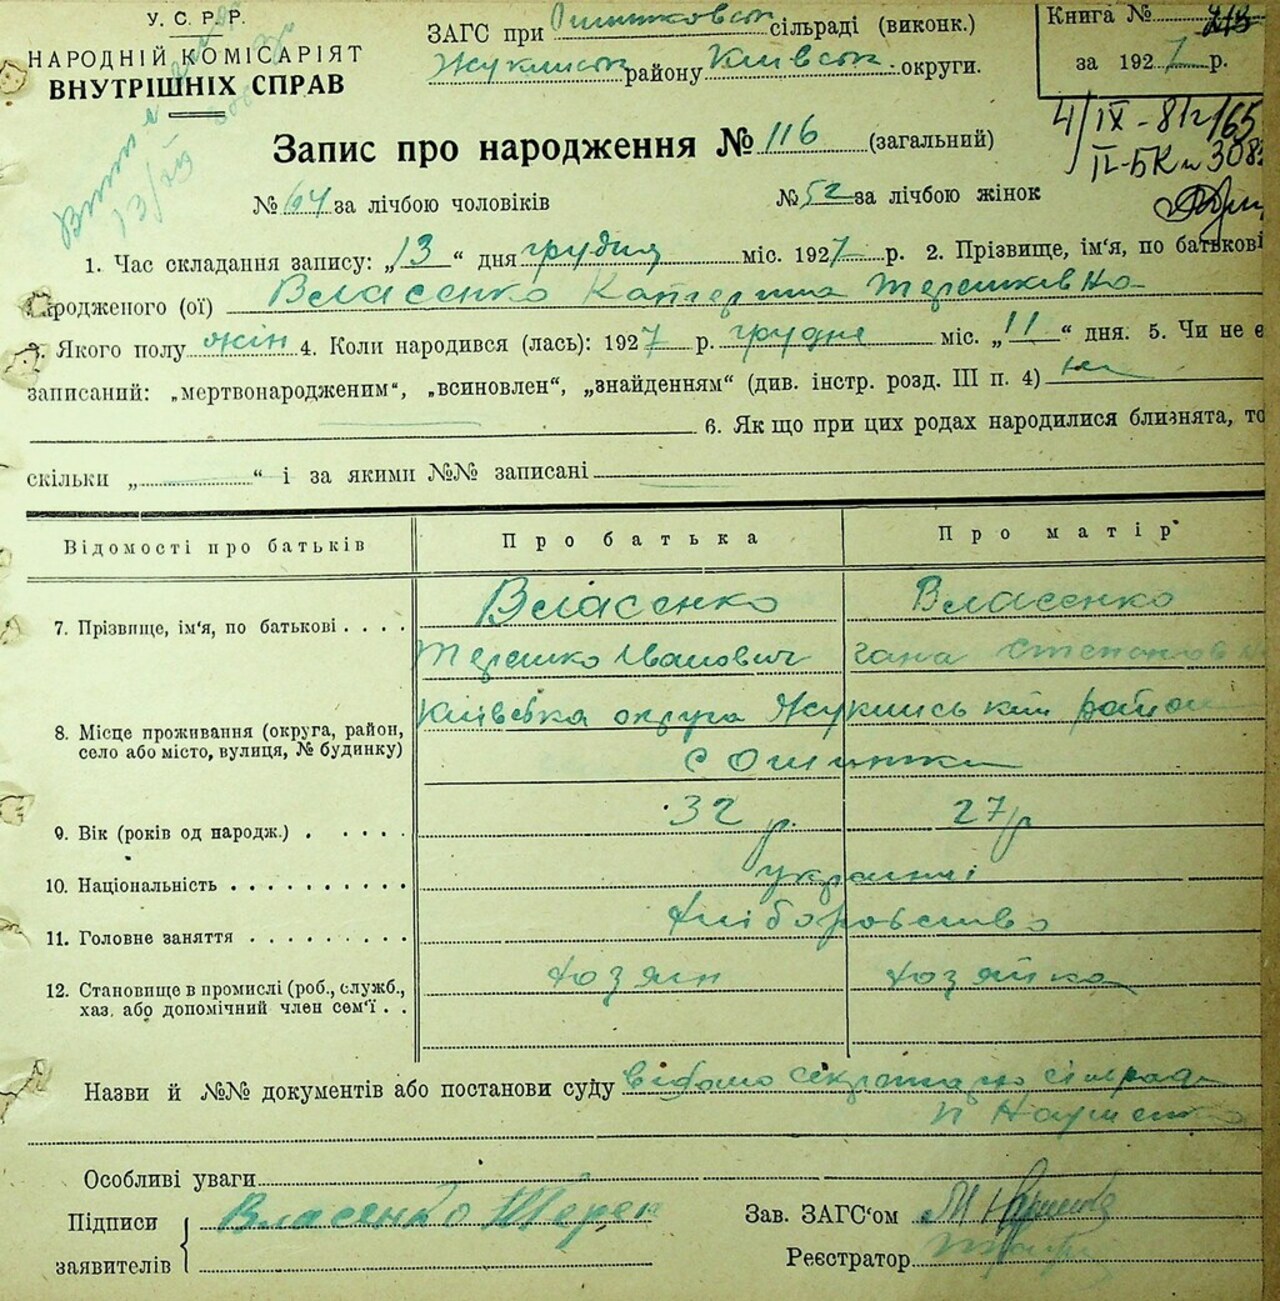 У. С. Р. Р.
НАРОДНІЙ КОМІСАРІЯТ
ВНУТРІШНІХ СПРАВ
ЗАГС при сільраді (виконк.)
району Київськ. округи.
Книга №
за 1927 р.
4/IX-81г
Запис про народження № 116 (загальний)
№ 64 за лічбою чоловіків № 52 за лічбою жінок
1. Час складання запису: „13“ дня грудня міс. 1927 р. 2. Прізвище, ім'я, по батькові
народженого (ої) Власенко Катерина Терешківна
3. Якого полу жін 4. Коли народився (лась): 1927 р. грудня міс. „11“ дня. 5. Чи не є
записаний: „мертвонародженим“, „всиновлен“, „знайденням“ (див. інстр. розд. III п. 4) ні
6. Як що при цих родах народилися близнята, то
скільки „ “ і за якими №№ записані
Відомості про батьків Про батька Про матір
7. Прізвище, ім'я, по батькові Власенко Власенко
Терешко Іванович Гана Степановна
8. Місце проживання (округа, район, село або місто, вулиця, № будинку) Київська округа район
с
9. Вік (років од народж.) 32 р. 27 р
10. Національність українці
11. Головне заняття Хліборобство
12. Становище в промислі (роб., служб., хаз. або допомічний член сем'ї Хозяін Хозяйка
Назви й №№ документів або постанови суду відомо секретарю сільради
Особливі уваги
Підписи заявителів Власенко Терен
Зав. ЗАГС'ом
Реєстратор